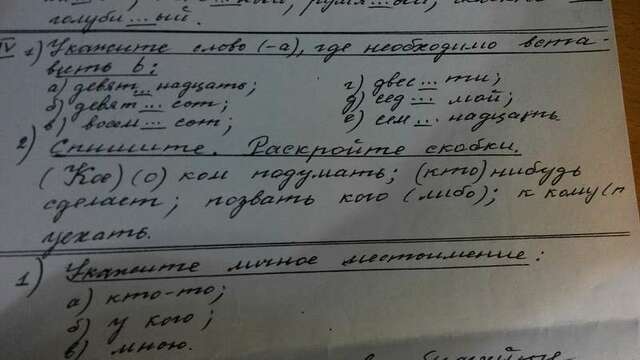 голуби...ый.
IV 1) Укажите слово (-а), где необходимо вста-
вить ь:
а) девят...надцать; г) двес...ти;
б) девят...сот; д) сед...мой;
в) восем...сот; е) сем...надцать
2) Спишите. Раскройте скобки.
(Кое) (о) ком подумать; (кто) нибудь
сделает; позвать кого (либо); к кому (п
уехать.
1) Укажите личное местоимение:
а) кто-то;
б) у кого;
в) мною.